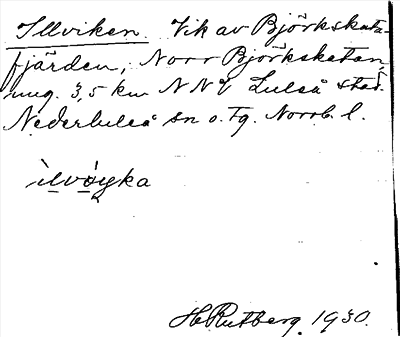 Illviken. Vik av Björkskata-
fjärden, Norr Björkskatan,
ung. 3,5 km NNV Luleå stad.
Nederluleå sn o. tg. Norrb. l.
H. Rutberg 1930.